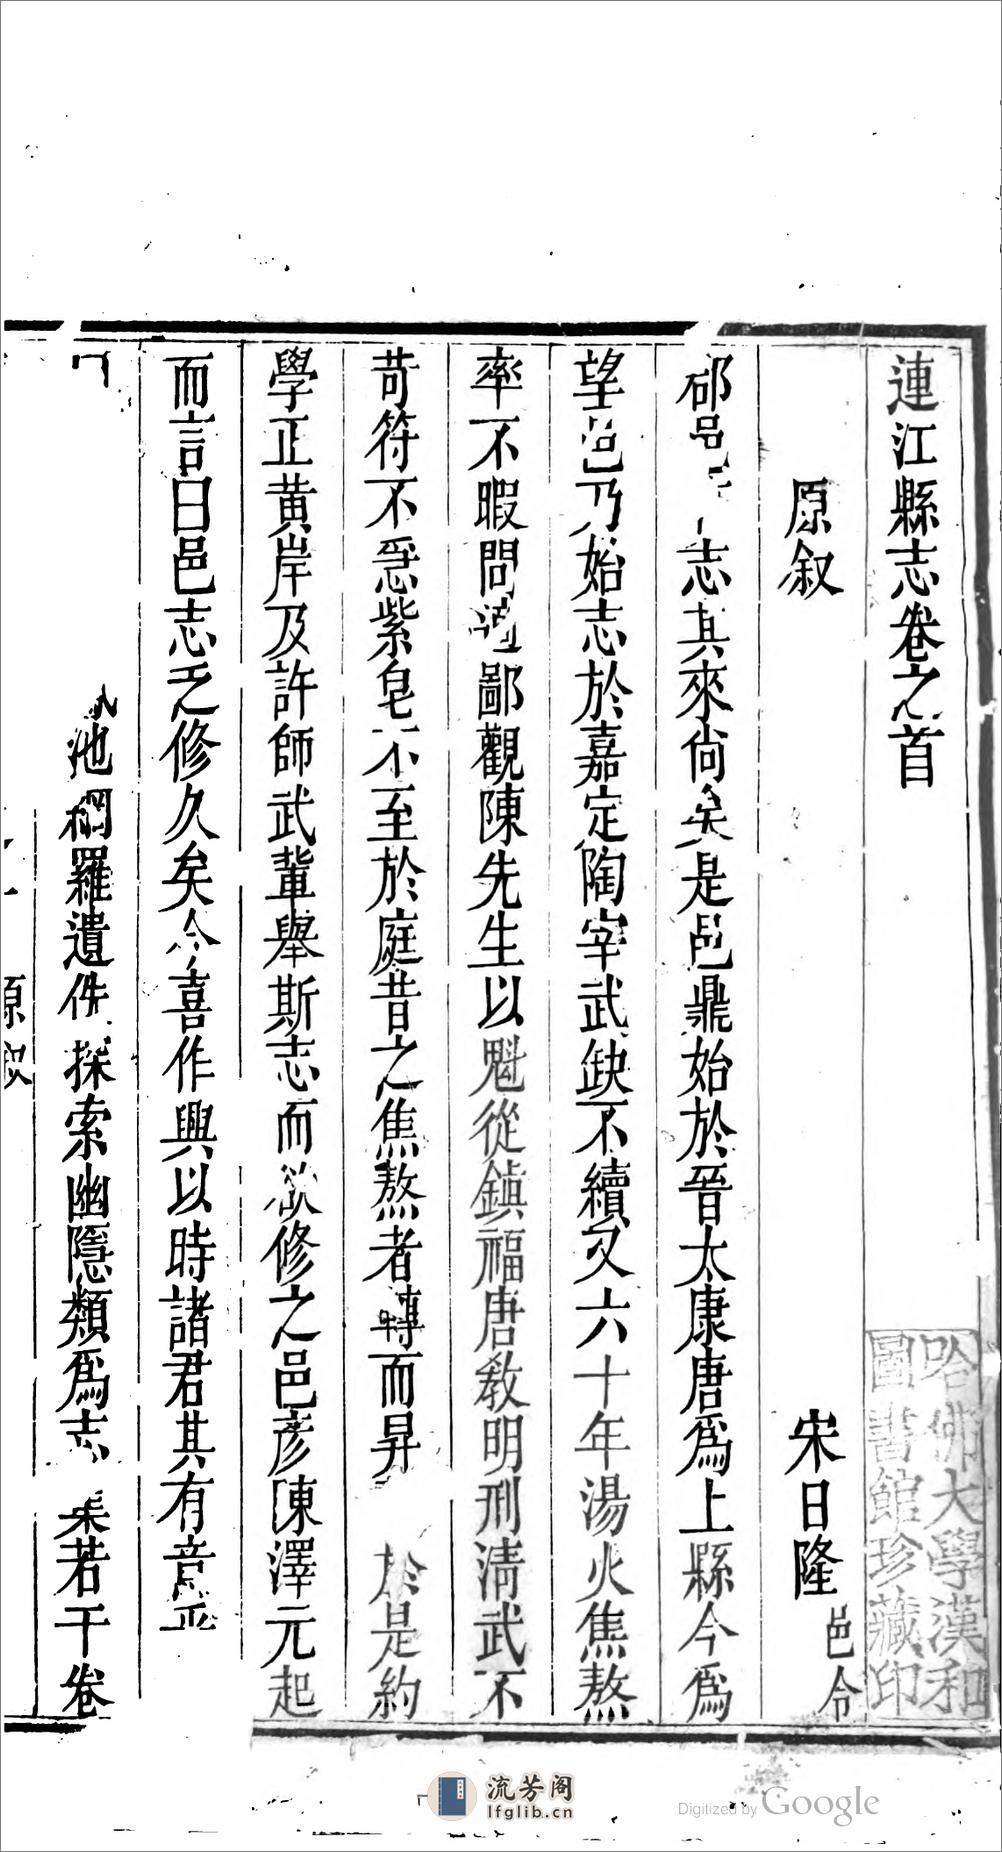 連江縣志卷之首
原叙
宋日隆邑令
郡邑志其來尚矣是邑鼎始於晉太康唐爲上縣今爲
望邑乃始志於嘉定陶宰武缺不續又六十年湯火焦熬
率不暇問鄙觀陳先生以魁從鎮福唐教明刑清武不
苛符不惎紫皂不至於庭昔之焦熬者轉而昇於是約
學正黃岸及許師武輩舉斯志而欲修之邑彥陳澤元起
而言曰邑志之修久矣今喜作興以時諸君其有意乎
池櫚羅遺佚探索幽隱類爲志集若干卷
原叙
哈佛大學漢和
圖書館珍藏印
流芳阁
lfglib.cn
Digitized by Google